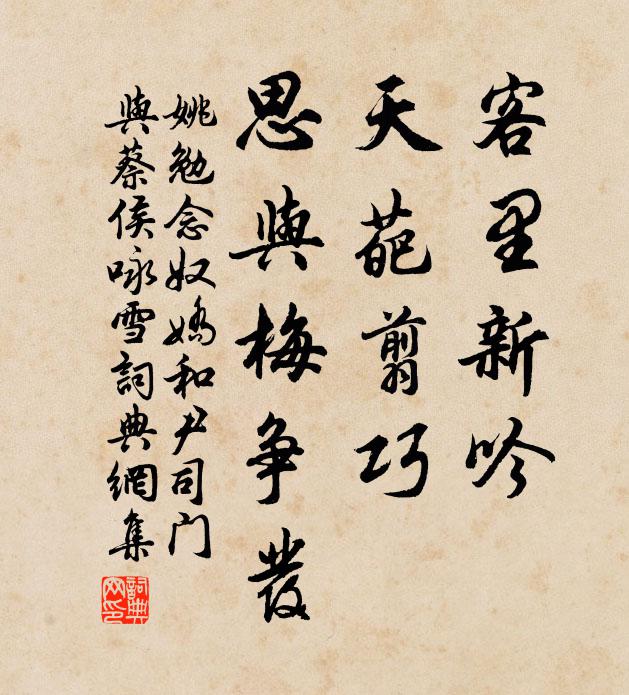 客里新吟
天葩翦巧
思與梅争發
姚勉念奴嬌和尹司门
與蔡侯咏雪詞典網集
詞典網印